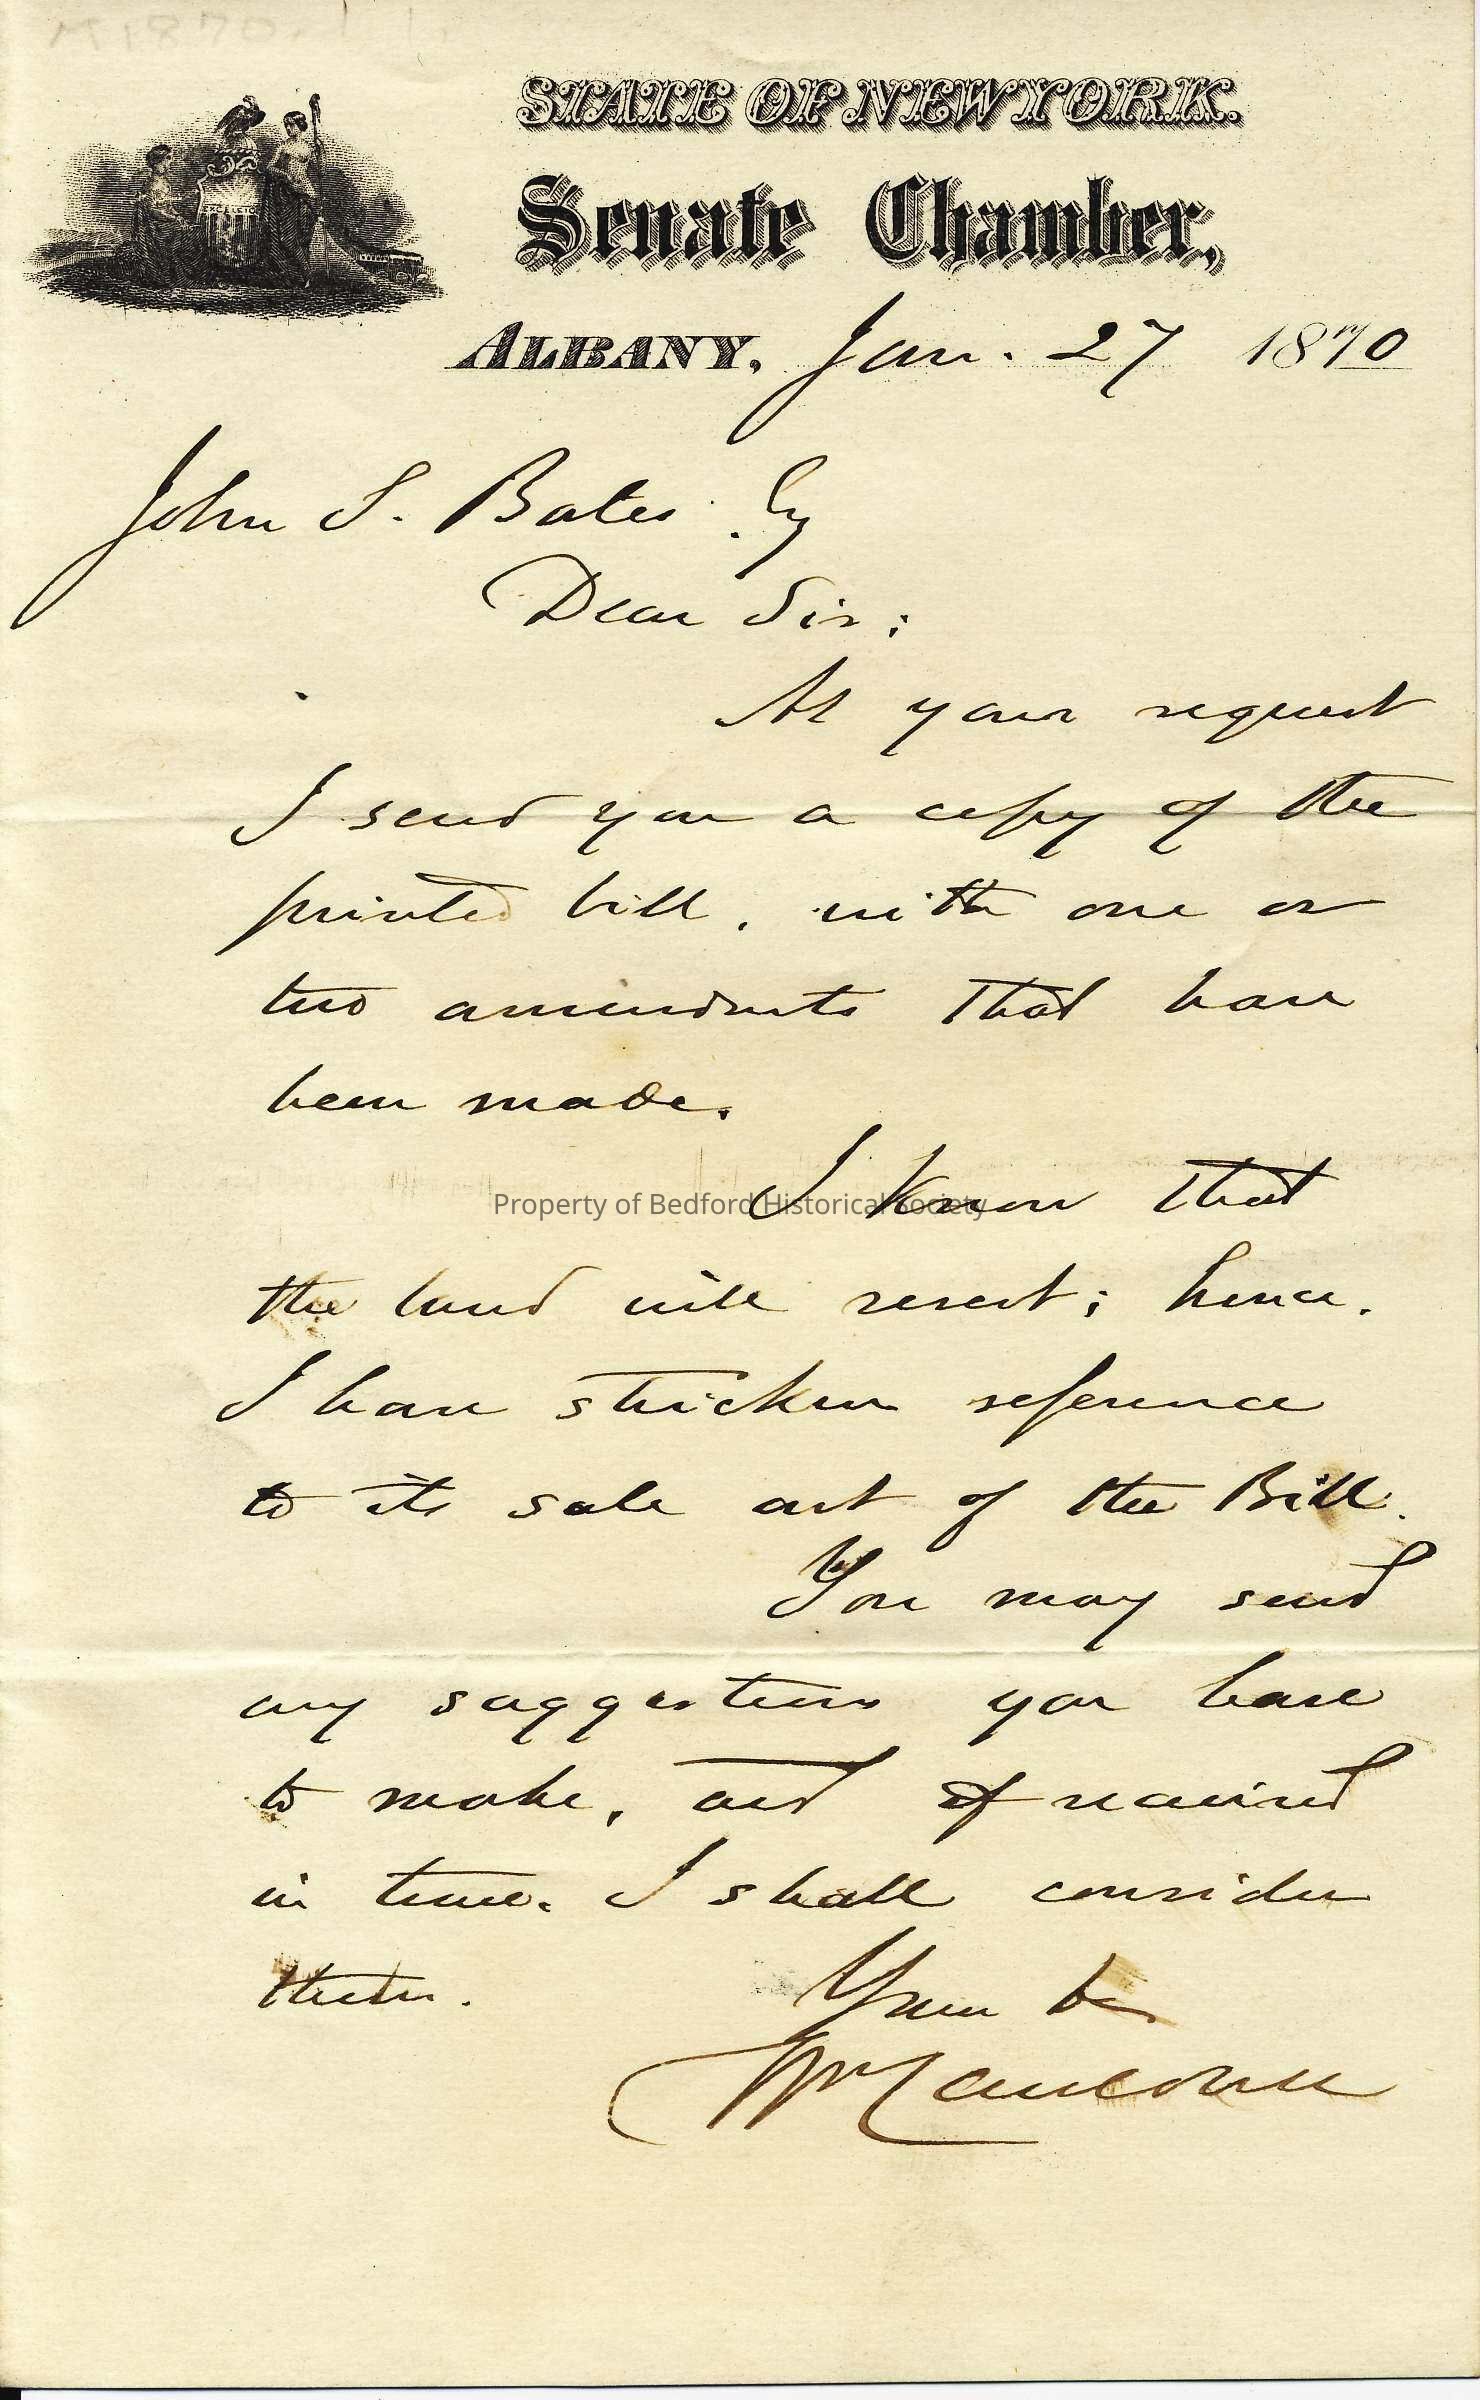 M1870.1.1.
STATE OF NEW YORK.
Senate Chamber,
ALBANY, Jan. 27 1870
John S. Bates. Esq
Dear Sir:
At your request
I send you a copy of the
printed bill, with one or
two amendments that have
been made.
I know that
Property of Bedford Historical Society
the land will revert; hence,
I have stricken reference
to its sale out of the Bill.
You may send
any suggestions you have
to make, and if received
in time, I shall consider
them.
Yours &c
Wm Cauldwell